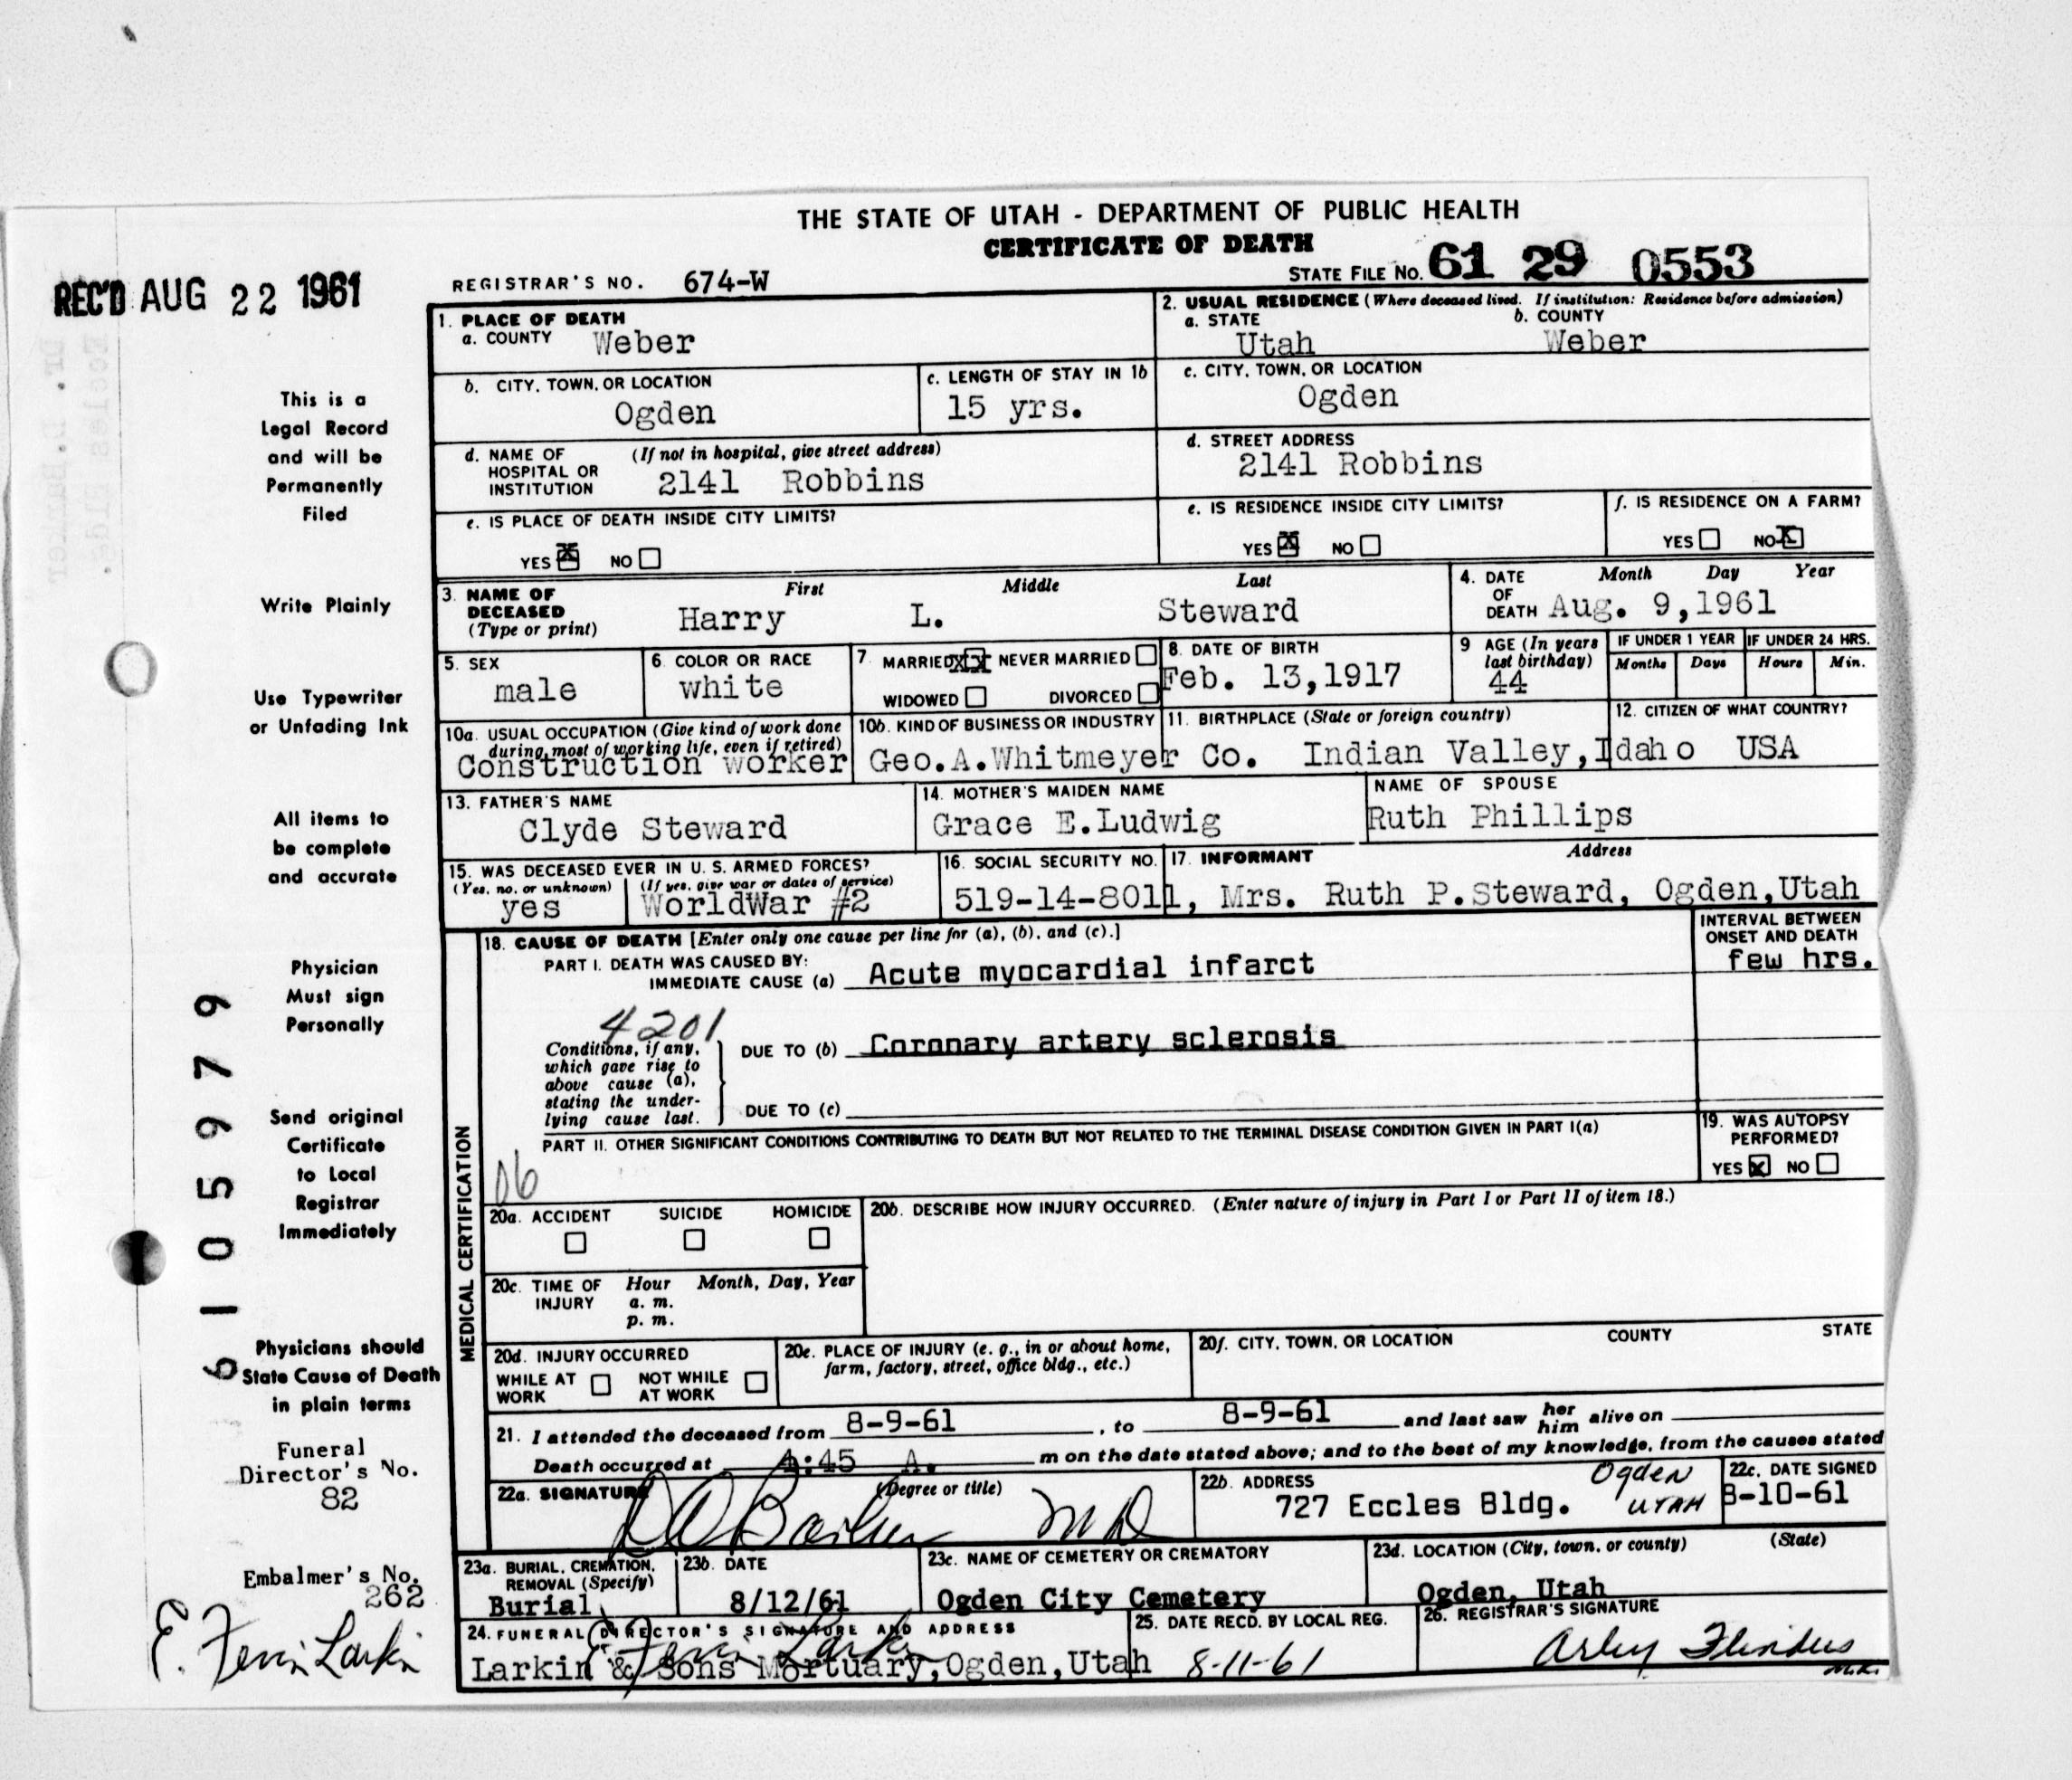 THE STATE OF UTAH - DEPARTMENT OF PUBLIC HEALTH
CERTIFICATE OF DEATH
REC'D AUG 22 1961
REGISTRAR'S NO. 674-W
STATE FILE NO. 61 29 0553
This is a
Legal Record
and will be
Permanently
Filed
Write Plainly
Use Typewriter
or Unfading Ink
All items to
be complete
and accurate
Physician
Must sign
Personally
Send original
Certificate
to Local
Registrar
Immediately
Physicians should
State Cause of Death
in plain terms
Funeral
Director's No.
82
Embalmer's No.
262
E. Fevin Larkin
6105979
1. PLACE OF DEATH
a. COUNTY Weber
2. USUAL RESIDENCE (Where deceased lived. If institution: Residence before admission)
a. STATE b. COUNTY
Utah Weber
b. CITY, TOWN, OR LOCATION
Ogden
c. LENGTH OF STAY IN 1b
15 yrs.
c. CITY, TOWN, OR LOCATION
Ogden
d. NAME OF HOSPITAL OR INSTITUTION (If not in hospital, give street address)
2141 Robbins
d. STREET ADDRESS
2141 Robbins
e. IS PLACE OF DEATH INSIDE CITY LIMITS?
YES X NO
e. IS RESIDENCE INSIDE CITY LIMITS?
YES X NO
f. IS RESIDENCE ON A FARM?
YES NO X
3. NAME OF DECEASED (Type or print)
First Middle Last
Harry L. Steward
4. DATE OF DEATH Month Day Year
Aug. 9,1961
5. SEX
male
6. COLOR OR RACE
white
7. MARRIED XX NEVER MARRIED
WIDOWED DIVORCED
8. DATE OF BIRTH
Feb. 13,1917
9 AGE (In years last birthday)
44
IF UNDER 1 YEAR
Months Days
IF UNDER 24 HRS.
Hours Min.
10a. USUAL OCCUPATION (Give kind of work done during most of working life, even if retired)
Construction worker
10b. KIND OF BUSINESS OR INDUSTRY
Geo.A.Whitmeyer Co.
11. BIRTHPLACE (State or foreign country)
Indian Valley,Idaho
12. CITIZEN OF WHAT COUNTRY?
USA
13. FATHER'S NAME
Clyde Steward
14. MOTHER'S MAIDEN NAME
Grace E.Ludwig
NAME OF SPOUSE
Ruth Phillips
15. WAS DECEASED EVER IN U. S. ARMED FORCES?
(Yes, no, or unknown) (If yes, give war or dates of service)
yes WorldWar #2
16. SOCIAL SECURITY NO.
519-14-8011,
17. INFORMANT Address
Mrs. Ruth P.Steward, Ogden,Utah
MEDICAL CERTIFICATION
18. CAUSE OF DEATH [Enter only one cause per line for (a), (b), and (c).]
INTERVAL BETWEEN ONSET AND DEATH
PART I. DEATH WAS CAUSED BY:
IMMEDIATE CAUSE (a) Acute myocardial infarct few hrs.
4201
Conditions, if any, which gave rise to above cause (a), stating the underlying cause last.
DUE TO (b) Coronary artery sclerosis
DUE TO (c)
PART II. OTHER SIGNIFICANT CONDITIONS CONTRIBUTING TO DEATH BUT NOT RELATED TO THE TERMINAL DISEASE CONDITION GIVEN IN PART I(a)
06
19. WAS AUTOPSY PERFORMED?
YES X NO
20a. ACCIDENT SUICIDE HOMICIDE
20b. DESCRIBE HOW INJURY OCCURRED. (Enter nature of injury in Part I or Part II of item 18.)
20c. TIME OF INJURY Hour Month, Day, Year
a. m.
p. m.
20d. INJURY OCCURRED
WHILE AT WORK NOT WHILE AT WORK
20e. PLACE OF INJURY (e. g., in or about home, farm, factory, street, office bldg., etc.)
20f. CITY, TOWN, OR LOCATION COUNTY STATE
21. I attended the deceased from 8-9-61, to 8-9-61 and last saw her him alive on
Death occurred at 4:45 A. m on the date stated above; and to the best of my knowledge, from the causes stated
22a. SIGNATURE (Degree or title)
MD
22b. ADDRESS
727 Eccles Bldg. Ogden UTAH
22c. DATE SIGNED
8-10-61
23a. BURIAL, CREMATION, REMOVAL (Specify)
Burial
23b. DATE
8/12/61
23c. NAME OF CEMETERY OR CREMATORY
Ogden City Cemetery
23d. LOCATION (City, town, or county) (State)
Ogden, Utah
24. FUNERAL DIRECTOR'S SIGNATURE AND ADDRESS
Larkin & Sons Mortuary,Ogden,Utah
25. DATE RECD. BY LOCAL REG.
8-11-61
26. REGISTRAR'S SIGNATURE
Arley Flinders